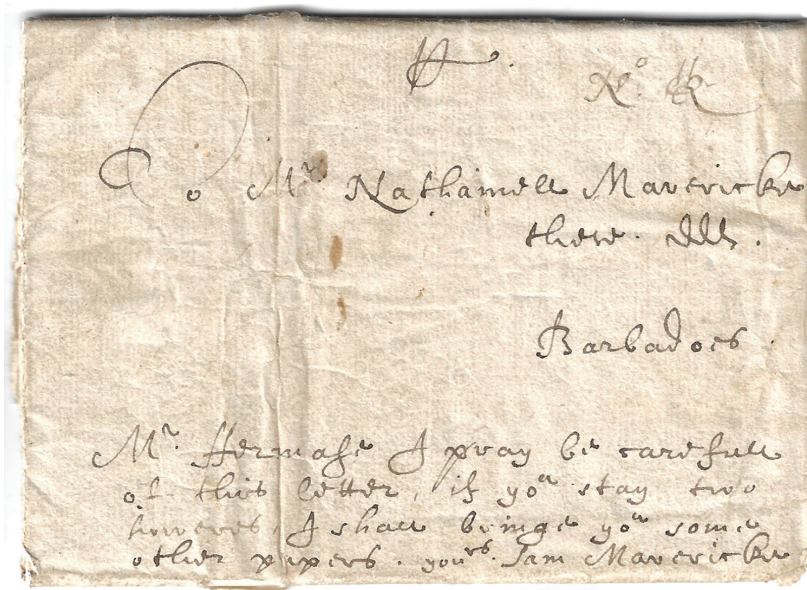 To Mr Nathaniell Mavericke
there. ddd.
Barbadoes.
Mr. I pray be carefull
of this letter, if you stay two
howeres, I shall bringe you some
other papers. yours. Sam Mavericke